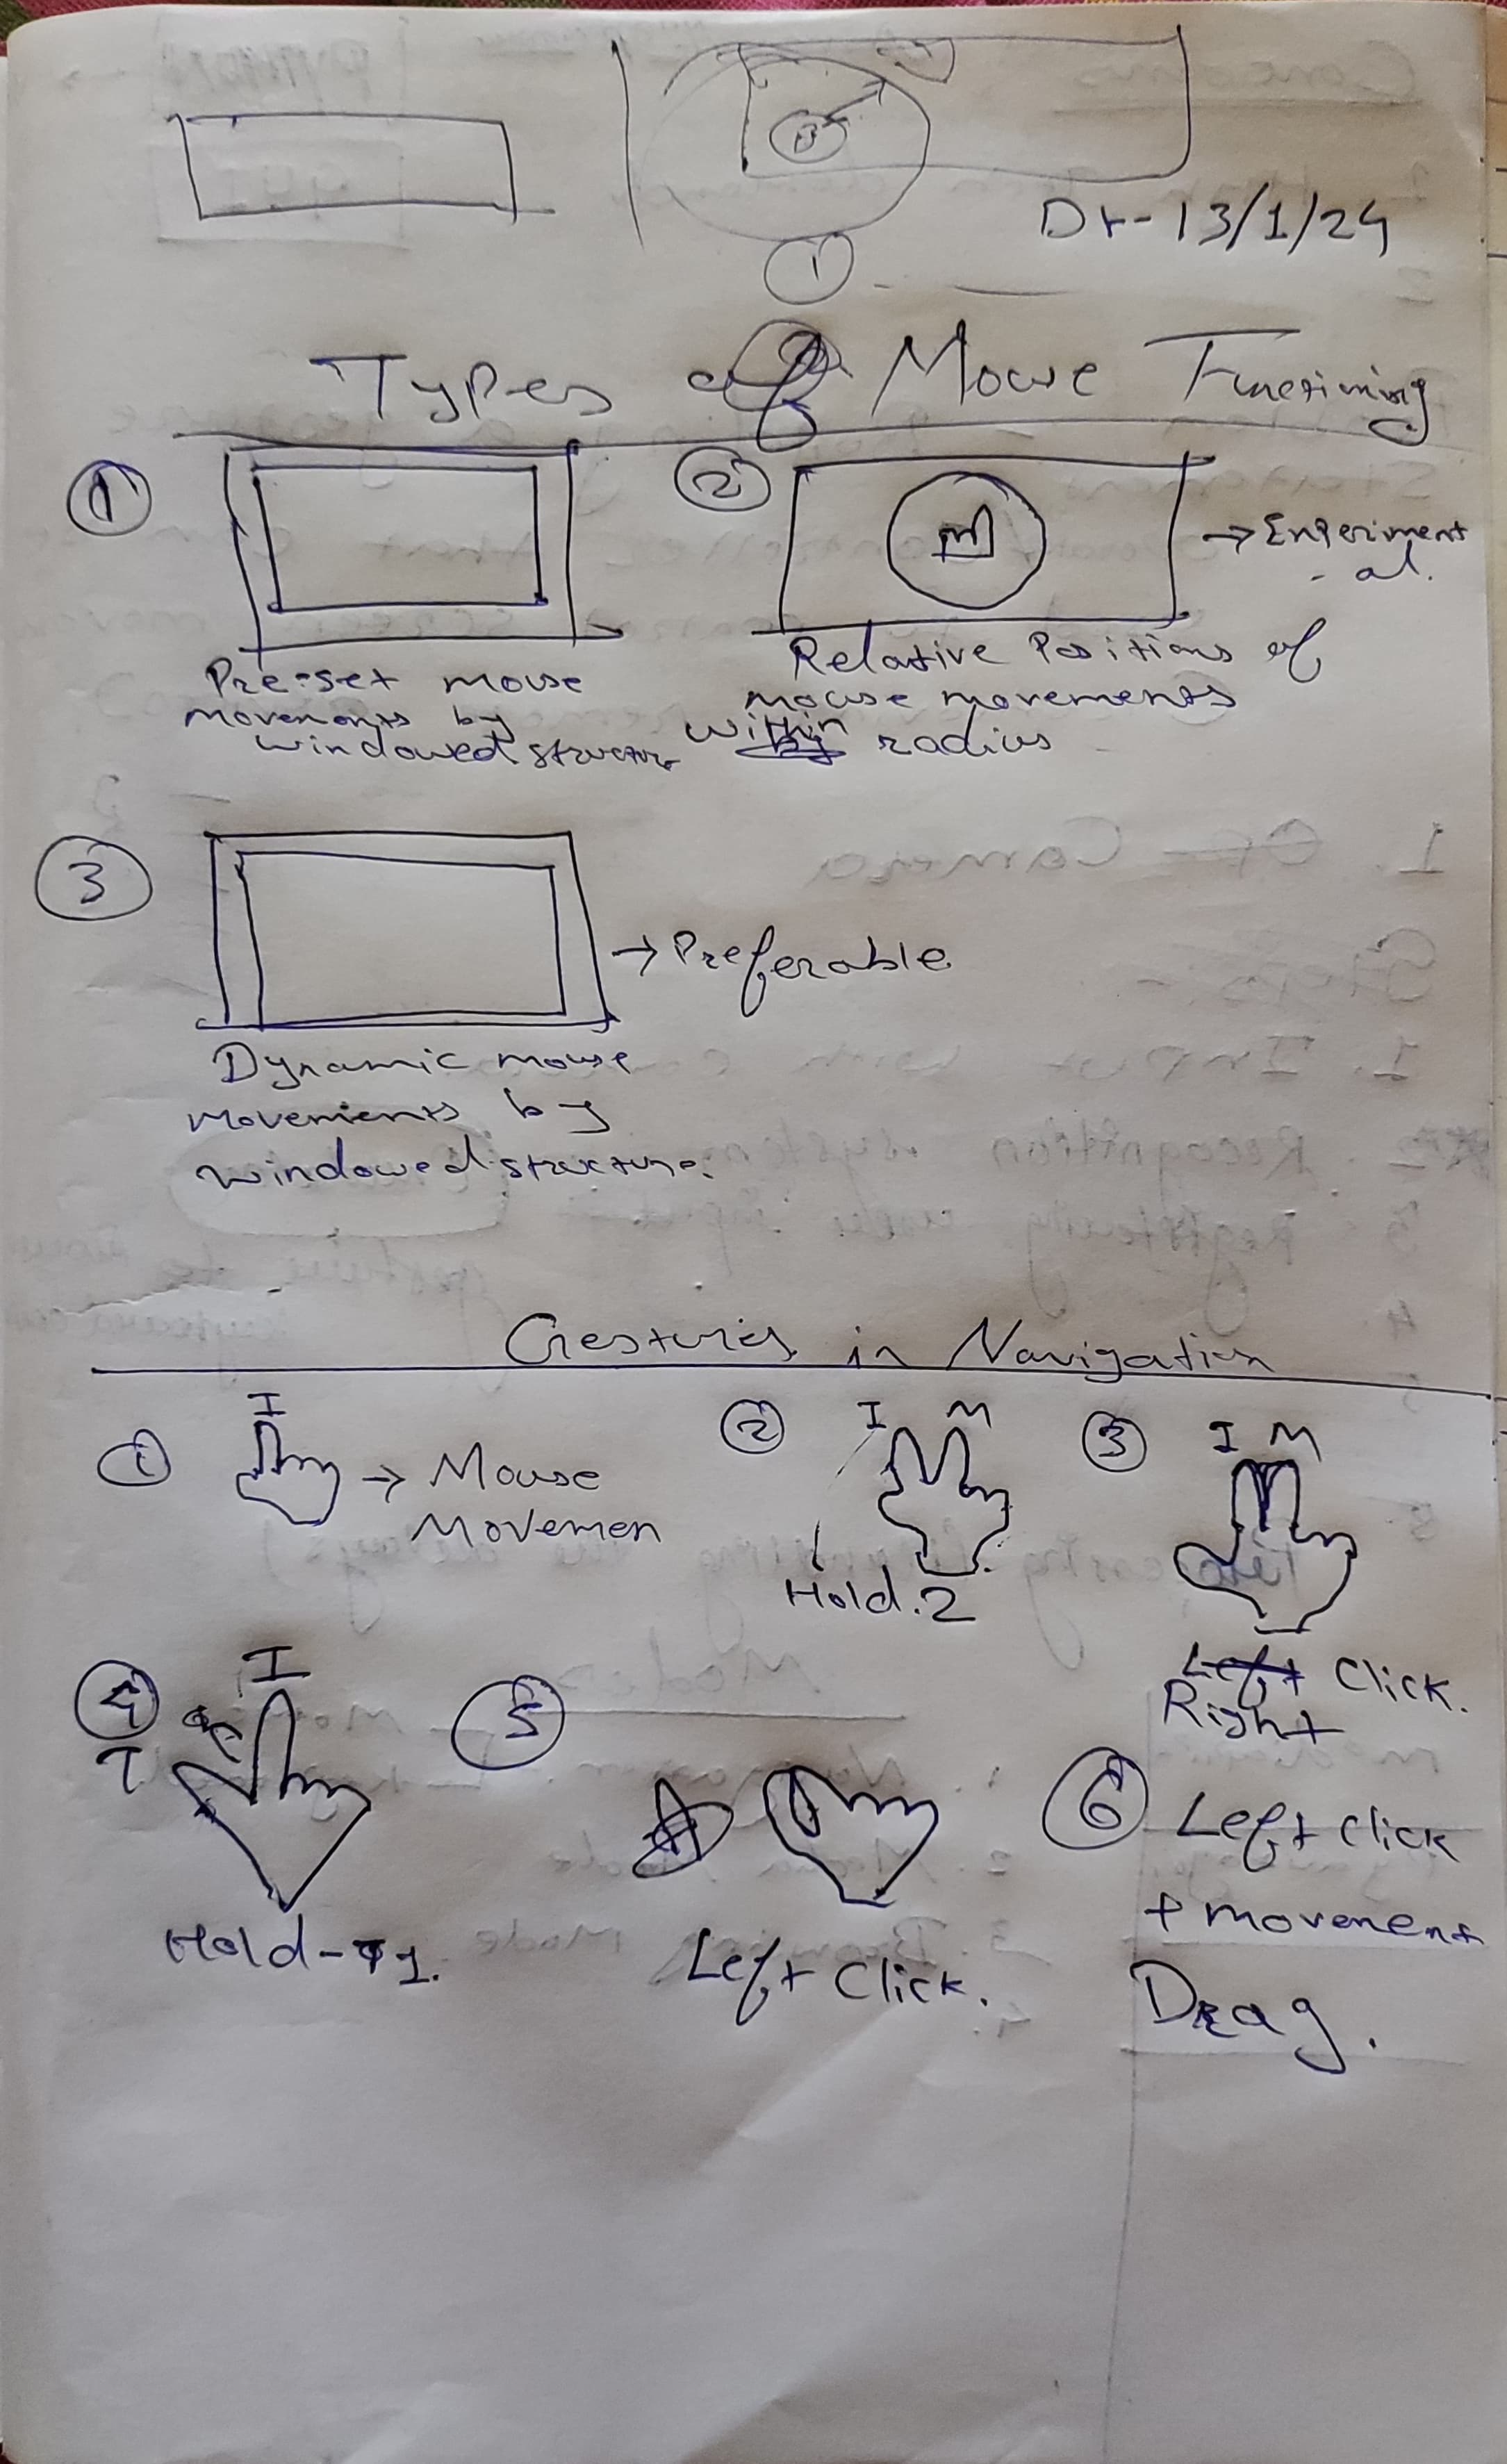 Dt-13/1/24
1
Types of Mouse Functioning
1
2
→ Experiment
-al.
Pre-set mouse
movements by
windowed structure
Relative Positions of
mouse movements
within radius
3
→ Preferable
Dynamic mouse
movements by
windowed structure.
Gestures in Navigation
1
I
→ Mouse
Movemen
2
I M
Hold.2
3
I M
Left Click.
Right
4
I
T
Hold-1.
5
Left Click.
6
Left Click
+ movement
Drag.